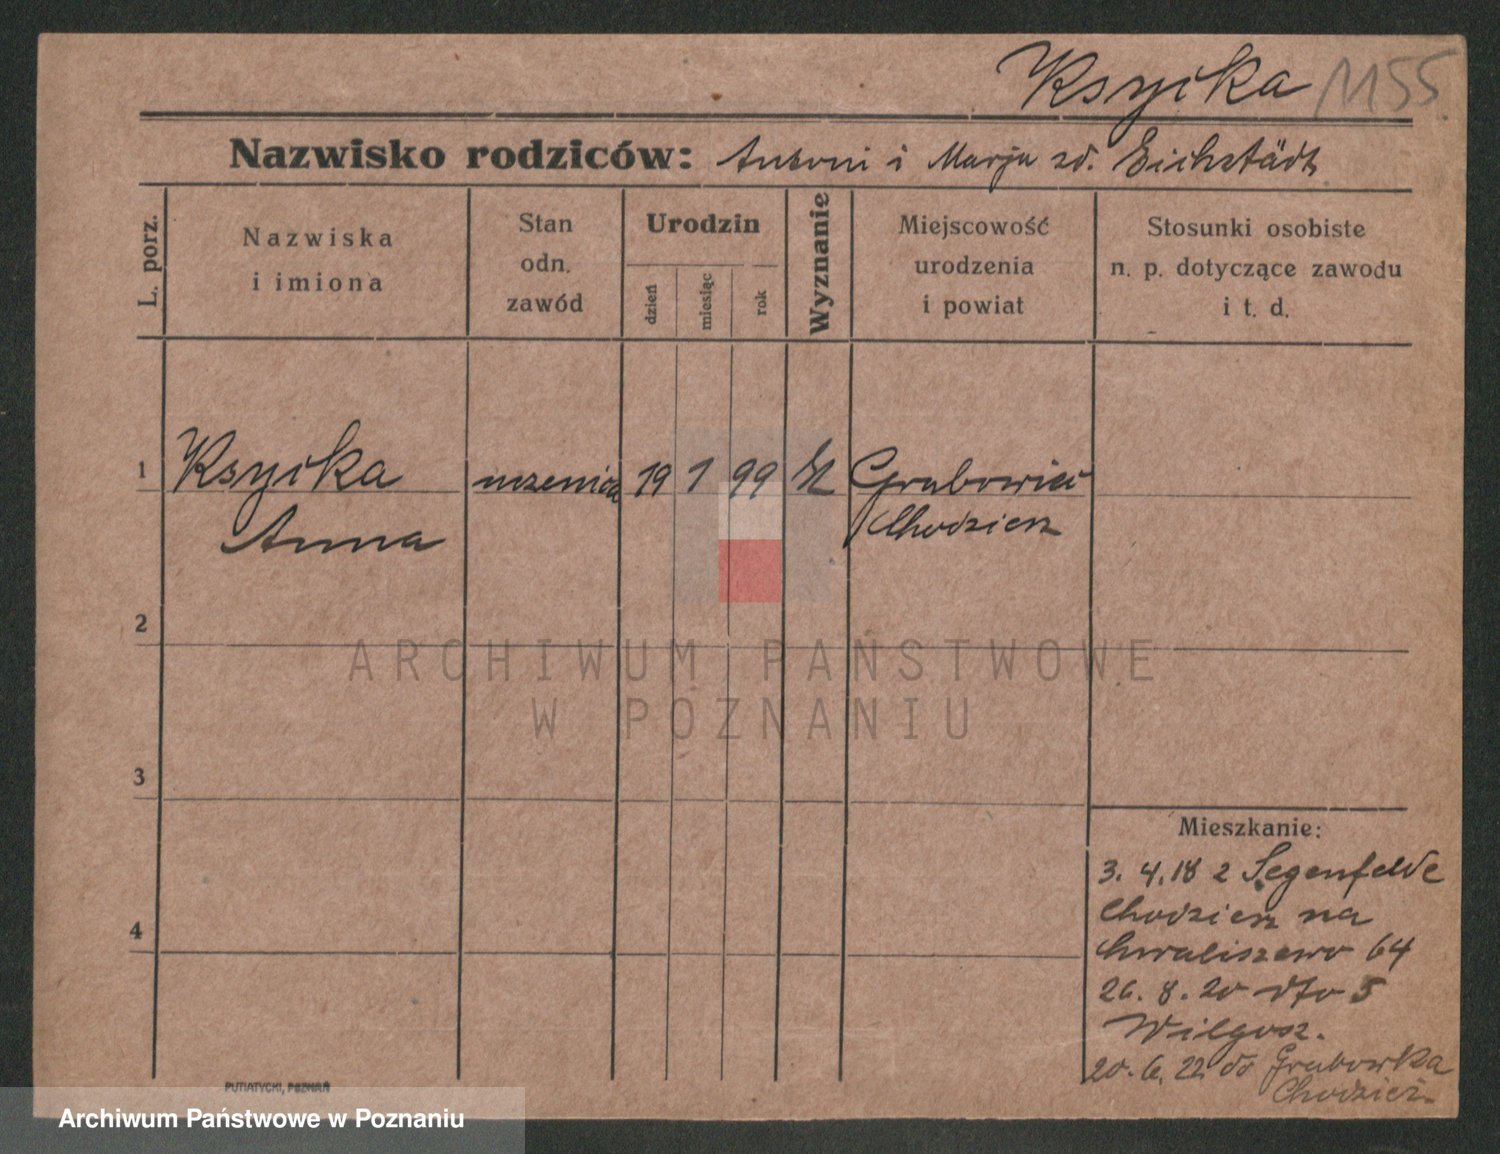 Ksycka 1155
Nazwisko rodziców: Antoni i Marja zd. Eichstädt
L. porz.
Nazwiska
i imiona
Stan
odn.
zawód
Urodzin
dzień
miesiąc
rok
Wyznanie
Miejscowość
urodzenia
i powiat
Stosunki osobiste
n. p. dotyczące zawodu
i t. d.
1 Ksycka uczenica 19 1 99 Grabowiec
Anna Chodzież
2
3
4
Mieszkanie:
3. 4. 18 z Segenfelde
Chodzież na
Chwaliszewo 64
26. 8. 20 dto 5
Wilgosz.
20. 6. 22 do Grabowka
Chodzież
PUTIATYCKI, POZNAŃ
ARCHIWUM PAŃSTWOWE
W POZNANIU
Archiwum Państwowe w Poznaniu